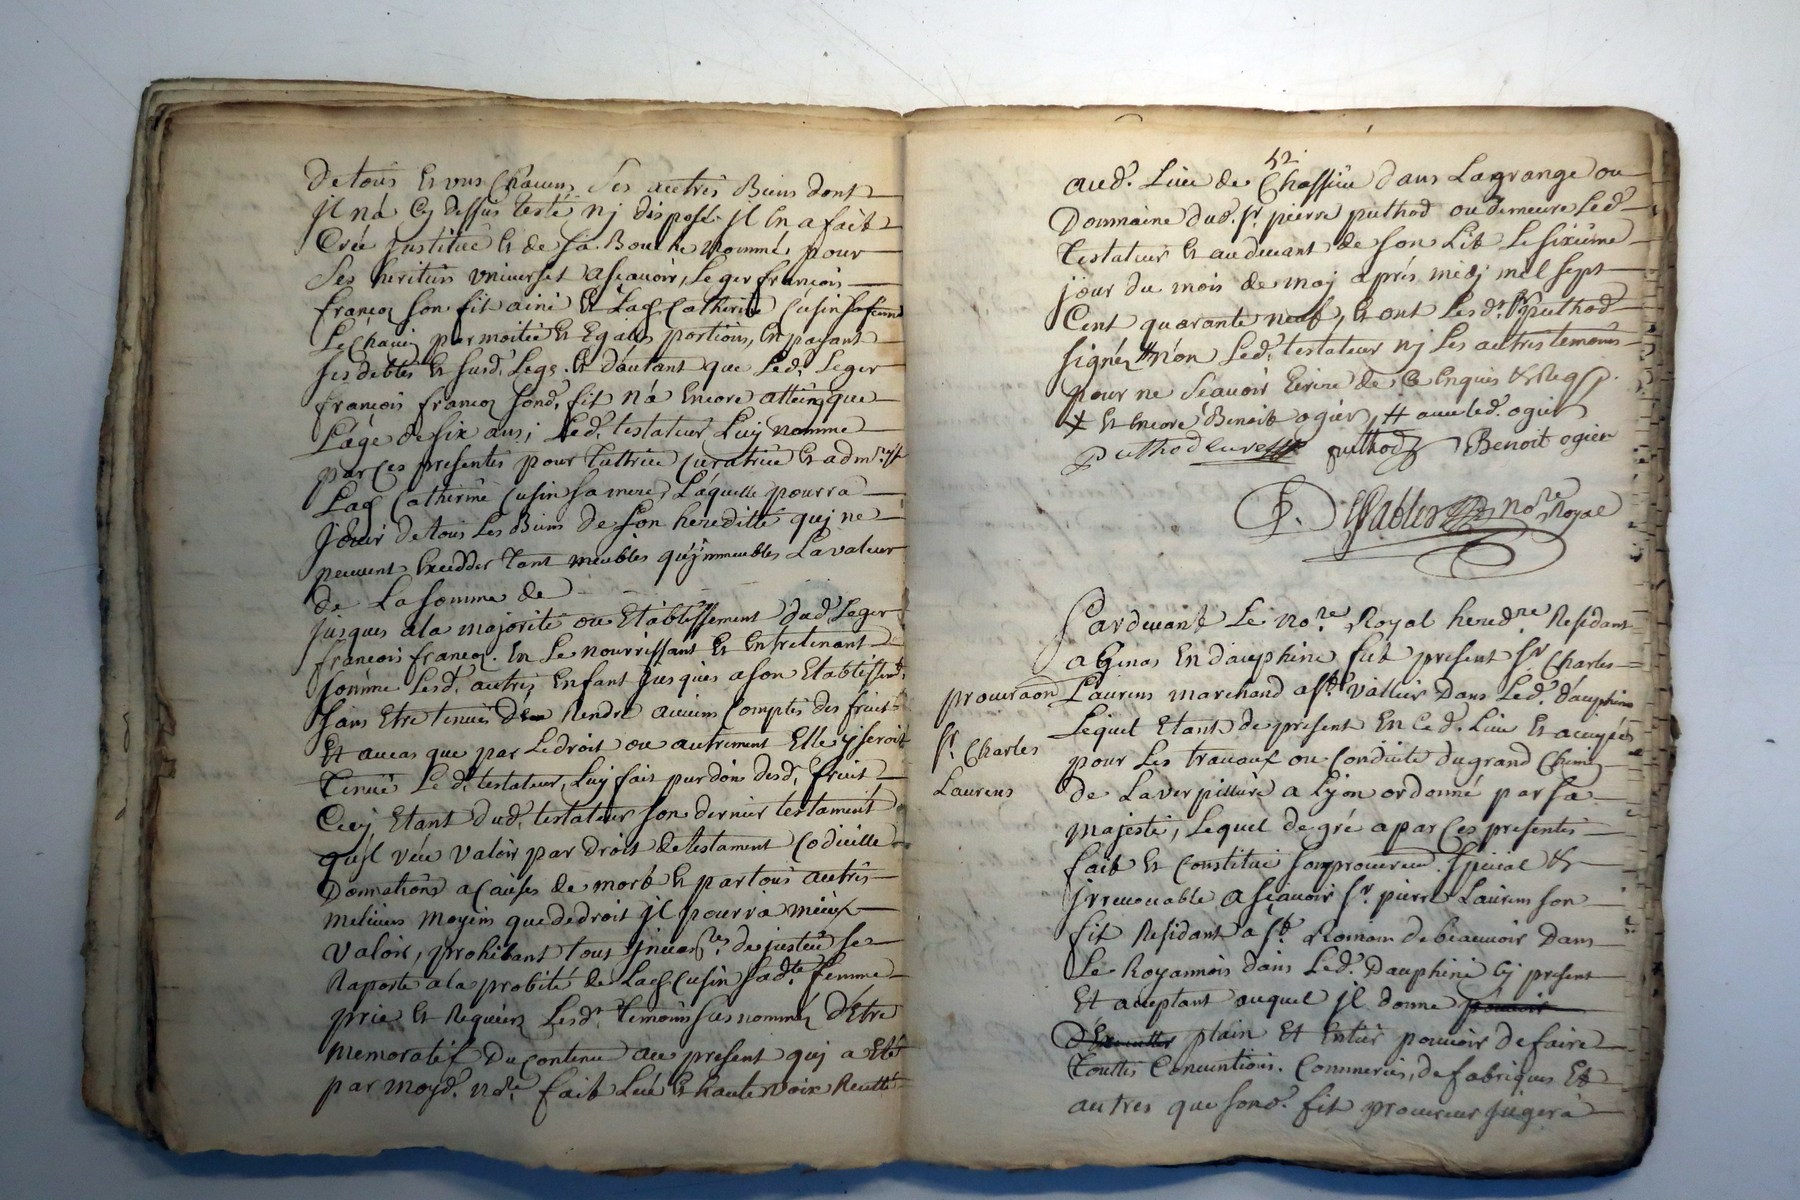 De tous Et uns Chacuns Ses autres Biens dont
jl n'a Cy dessus testé nj disposé jl En a fait
Créé jnstitué Et de Sa Bouche Nommé pour
Ses heritiers universel ascavoir, Leger francois
francoz son fit ainé Et Lad. Catherine Cusin sa femme
Le chacun par moitié Et Egales portions, En payant
ses debtes Et susd. Legs. Et d'autant que Led. Leger
francois francoz sond. fit n'a Encore atteing que
L'age de six ans; Led. testateur Luy nomme
par Ces presentes pour tuttrice Curatrice Et
Lad. Catherine Cusin sa mere, Laquelle pourra
Jouir de tous Les Biens de son heredité quj ne
peuvent Exceder tant meubles qu'jmmeubles La valeur
de La somme de
jusques a la majorité ou Etablissement dud. Leger
francois francoz. En Le nourrissant Et Entretenant
somme Lesd. autres Enfant jusques a son Etablissemt.
sans Etre tenue de Rendre aucuns Comptes des fruits
Et au cas que par Le droit ou autrement Elle y seroit
tenue Le d. testateur, Luy fait pur don desd. fruit
Cecy Etant dud. testateur son dernier testament
qu'jl veut valoir par droit de testament Codicille
Donnations a Causes de mort Et par tous autres
melieurs moyens que de droit jl pourra mieux
valoir, prohibant tous de justice se
Raporte a la probité de Lad. Cusin sad.te femme
prie Et Requiert Lesd. temoins susnommés d'Etre
memoratif Du Contenu au present quj a Eté
par moyd. no.re fait Lu Et haute voix Recitté
52
aud. Lieu de Chassieu dans La grange ou
Dommaine dud. Sr. pierre puthod ou demeure Led.
testateur Et au devant de son Lit Le sixieme
jour du mois de maj aprés midj mil sept
Cent quarante neuf, Et ont Lesd. Srs puthod
signés # non Led. testateur nj Les autres temoins
pour ne Scavoir Ecrire de Ce Enquis Et Req.
X Et Encore Benoit ogier, # avec led. ogier
puthod curé puthod Benoit ogier
no.re Royal
Pardevant Le no.re Royal hered.re Residant
a Genas En dauphiné fut present Sr. Charles
Laurens marchand a St. vallier dans Led. dauphiné
procuraon
Sr. Charles
Laurens
Lequel Etant de present En Ce d. Lieu Et occupés
pour Les travaux ou Conduite du grand Chemin
de La verpilliere a Lyon ordonné par sa
majesté, Lequel de gré a par Ces presentes
fait Et Constitué son procureur special Et
jrrevocable a scavoir Sr. pierre Laurens son
fit Residant a St. Romain de beauvoir dans
Le Royannois dans Led. Dauphiné Cy present
Et aceptant auquel jl donne pouvoir
plain Et Entier pouvoir de faire
toutes Conventions. Commerces, de fabriques Et
autres que sond. fit procureur jugera